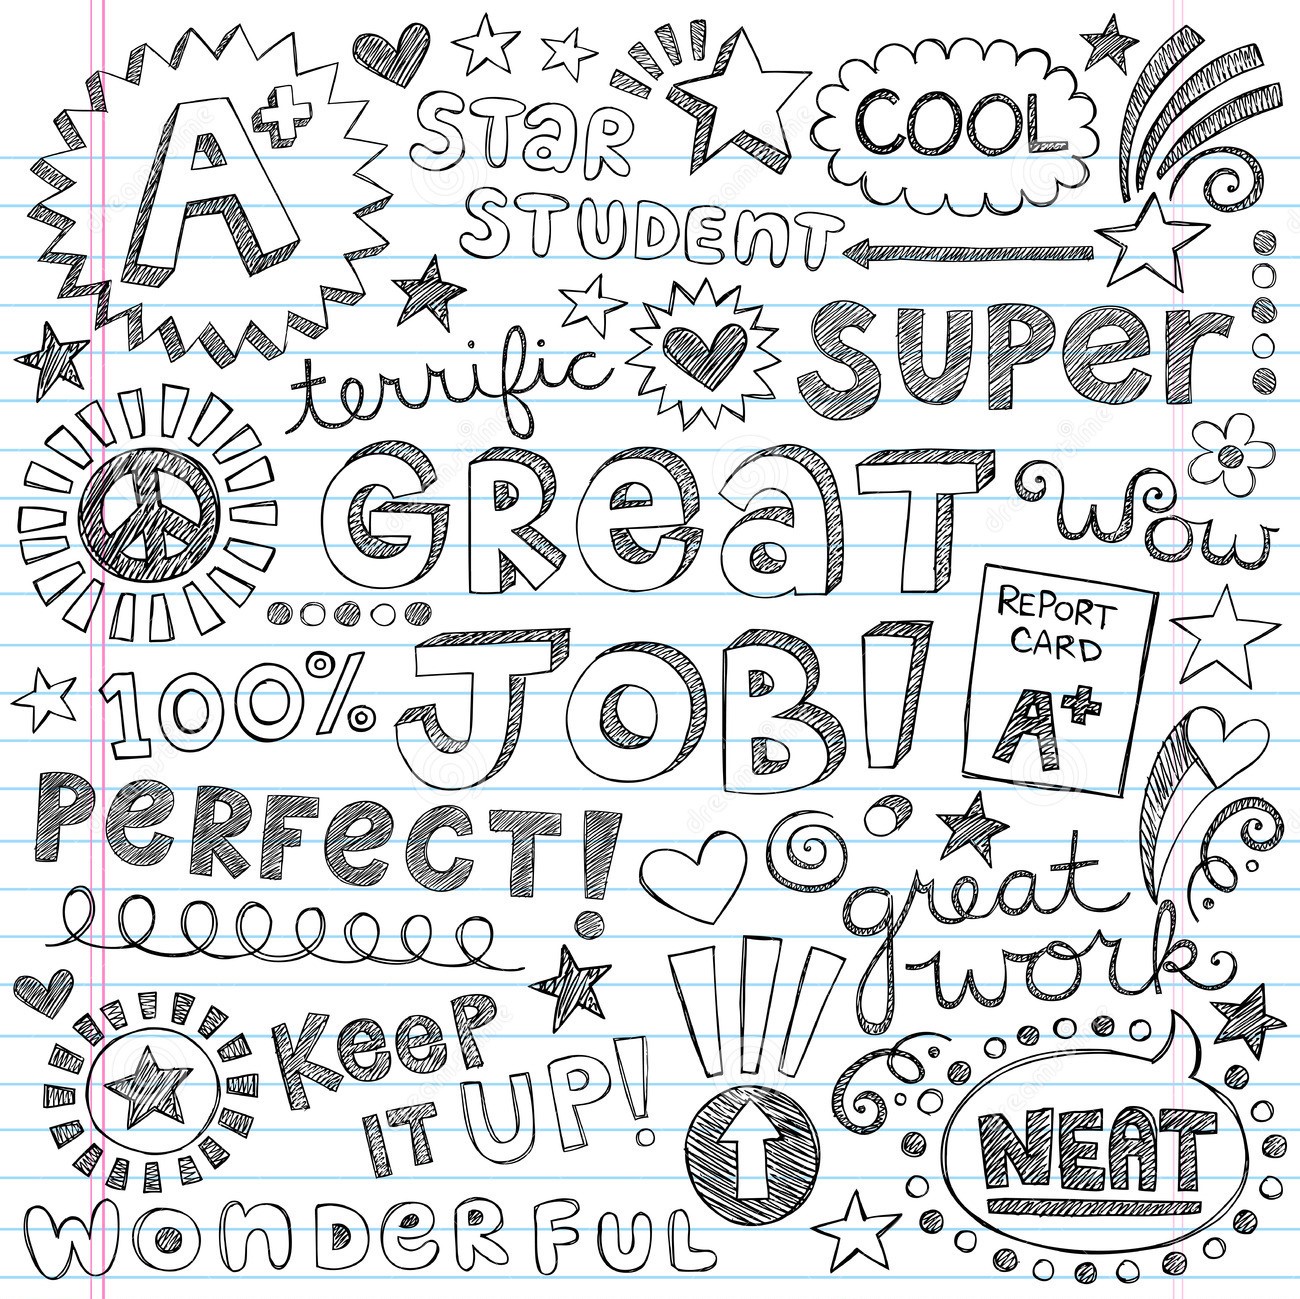 A+
STaR
STUDENT
COOL
terrific
SUPer
GReaT
wow
JOB!
REPORT
CARD
A+
100%
PeRFecT!
great
work
KeeP
IT UP!
NEAT
WonDeRFUL